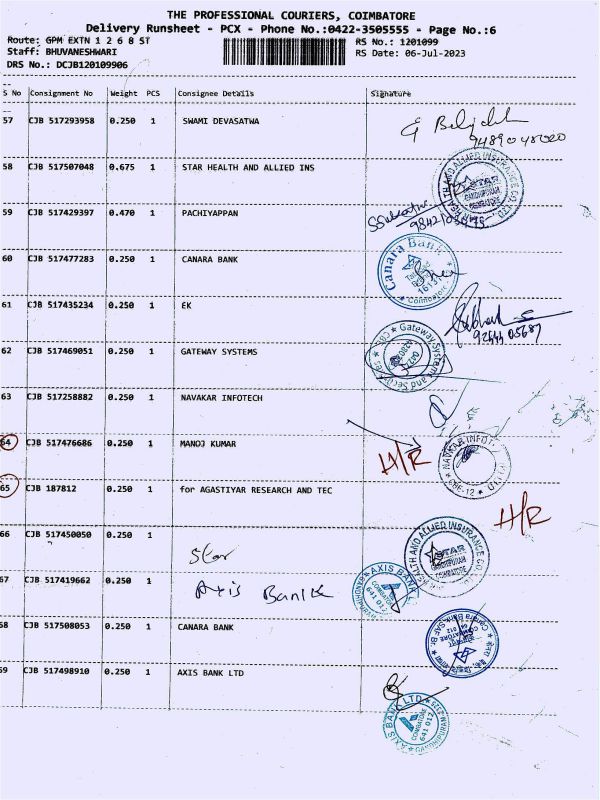 THE PROFESSIONAL COURIERS, COIMBATORE
Delivery Runsheet - PCX - Phone No.:0422-3505555 - Page No.:6
Route: GPM EXTN 1 2 6 8 ST RS No.: 1201099
Staff: BHUVANESHWARI RS Date: 06-Jul-2023
DRS No.: DCJB120109906
S No Consignment No Weight PCS Consignee Details Signature
57 CJB 517293958 0.250 1 SWAMI DEVASATWA
9489048020
58 CJB 517507048 0.675 1 STAR HEALTH AND ALLIED INS
HEALTH AND ALLIED INSURANCE CO. LTD
STAR
GANDHIPURAM
COIMBATORE
59 CJB 517429397 0.470 1 PACHIYAPPAN
60 CJB 517477283 0.250 1 CANARA BANK
Canara Bank
Coimbatore
61 CJB 517435234 0.250 1 EK
62 CJB 517469051 0.250 1 GATEWAY SYSTEMS
Gateway Systems and
63 CJB 517258882 0.250 1 NAVAKAR INFOTECH
64 CJB 517476686 0.250 1 MANOJ KUMAR
H/R
NAVKAR INFO
CBE-12
65 CJB 187812 0.250 1 for AGASTIYAR RESEARCH AND TEC
H/R
66 CJB 517450050 0.250 1
Star
HEALTH AND ALLIED INSURANCE CO. LTD
STAR
GANDHIPURAM
COIMBATORE
67 CJB 517419662 0.250 1
Axis Bank
AXIS BANK
COIMBATORE
641 012
68 CJB 517508053 0.250 1 CANARA BANK
Canara Bank
69 CJB 517498910 0.250 1 AXIS BANK LTD
AXIS BANK LTD
COIMBATORE
641 012
GANDHIPURAM